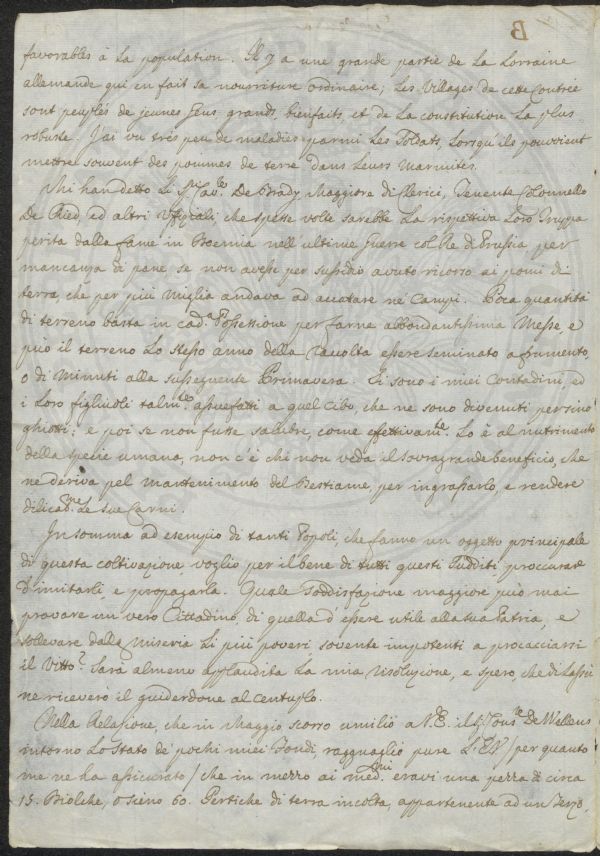 B
favorables à la population. Il y a une grande partie de La Lorraine
allemande qui en fait sa nourriture ordinaire; Les Villages de cette Contrée
sont peuplés de jeunes Gens grands, bienfaits, et de La constitution La plus
robuste. J'ai vu trés peu de maladies parmi Les Soldats, Lorsqu'ils pouvoient
mettre souvent des pommes de terre dans Leurs Marmites.
Mi han detto li Sri Cav.ri De Brady, Maggiore di Clerici, Tenente Colonnello
De Ried, ed altri Uffiziali, che spesse volte sarebbe La rispettiva Loro Truppa
perita dalla fame in Boemia nell'ultime Guerre col Re di Prussia per
mancanza di pane, se non avesse per sussidio avuto ricorso ai pomi di
terra, che per più Miglia andava ad accatare ne' Campi. Poca quantità
di terreno basta in cad.a Possessione per farne abbondantissima Messe, e
può il terreno Lo stesso anno della Racolta essere seminato a frumento,
o di Minuti alla susseguente Primavera. Si sono i miei Contadini, ed
i Loro figliuoli talm.te assuefatti a quel Cibo, che ne sono divenuti persino
ghiotti; e poi se non fusse salubre, come effettivam.te Lo è al nutrimento
della specie umana, non c'è chi non veda il sovragrande beneficio, che
ne deriva pel mantenimento del Bestiame, per ingrassarlo, e rendere
dilicat.me Le sue Carni.
In somma ad esempio di tanti Popoli, che fanno un oggetto principale
di questa coltivazione, voglio per il bene di tutti questi Sudditi proccurare
d'imitarli, e propagarla. Quale Soddisfazione maggiore può mai
provare un vero Cittadino, di quella d'essere utile alla sua Patria, e
sollevare dalla Miseria Li più poveri sovente impotenti a procacciarsi
il Vitto? Sarà almeno applaudita La mia risoluzione, e spero, che di Lassù
ne riceverò il guiderdone al centuplo.
Nella Relazione, che in Maggio scorso umiliò a V.E. il Sr Cons.re De Wellens
intorno Lo Stato de' pochi miei Fondi, ragguagliò pure L'E.V. / per quanto
me ne ha assicurato / che in mezzo ai med.mi eravi una pezza di circa
15. Biolche, o sieno 60. Pertiche di terra incolta, appartenente ad un Terzo,